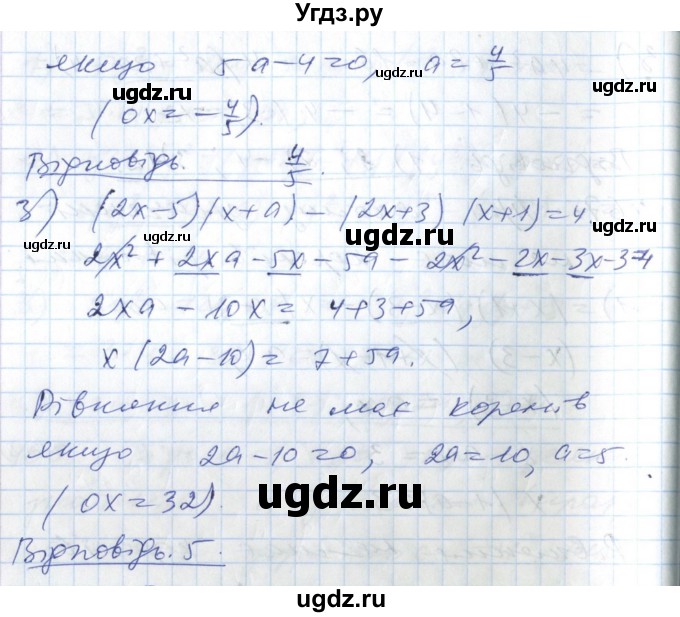 Угдз.ру
якщо 5а-4=0, а=4/5
(0x=-4/5).
Відповідь. 4/5.
3) (2x-5)(x+a)-(2x+3)(x+1)=4
2x²+2xa-5x-5a-2x²-2x-3x-3=4
2xa-10x=4+3+5a,
x(2a-10)=7+5a.
Рівняння не має коренів
якщо 2a-10=0, 2a=10, a=5.
(0x=32).
Відповідь. 5.
ugdz.ru
ugdz.ru
ugdz.ru
ugdz.ru
ugdz.ru
ugdz.ru
ugdz.ru
ugdz.ru
ugdz.ru
ugdz.ru
ugdz.ru